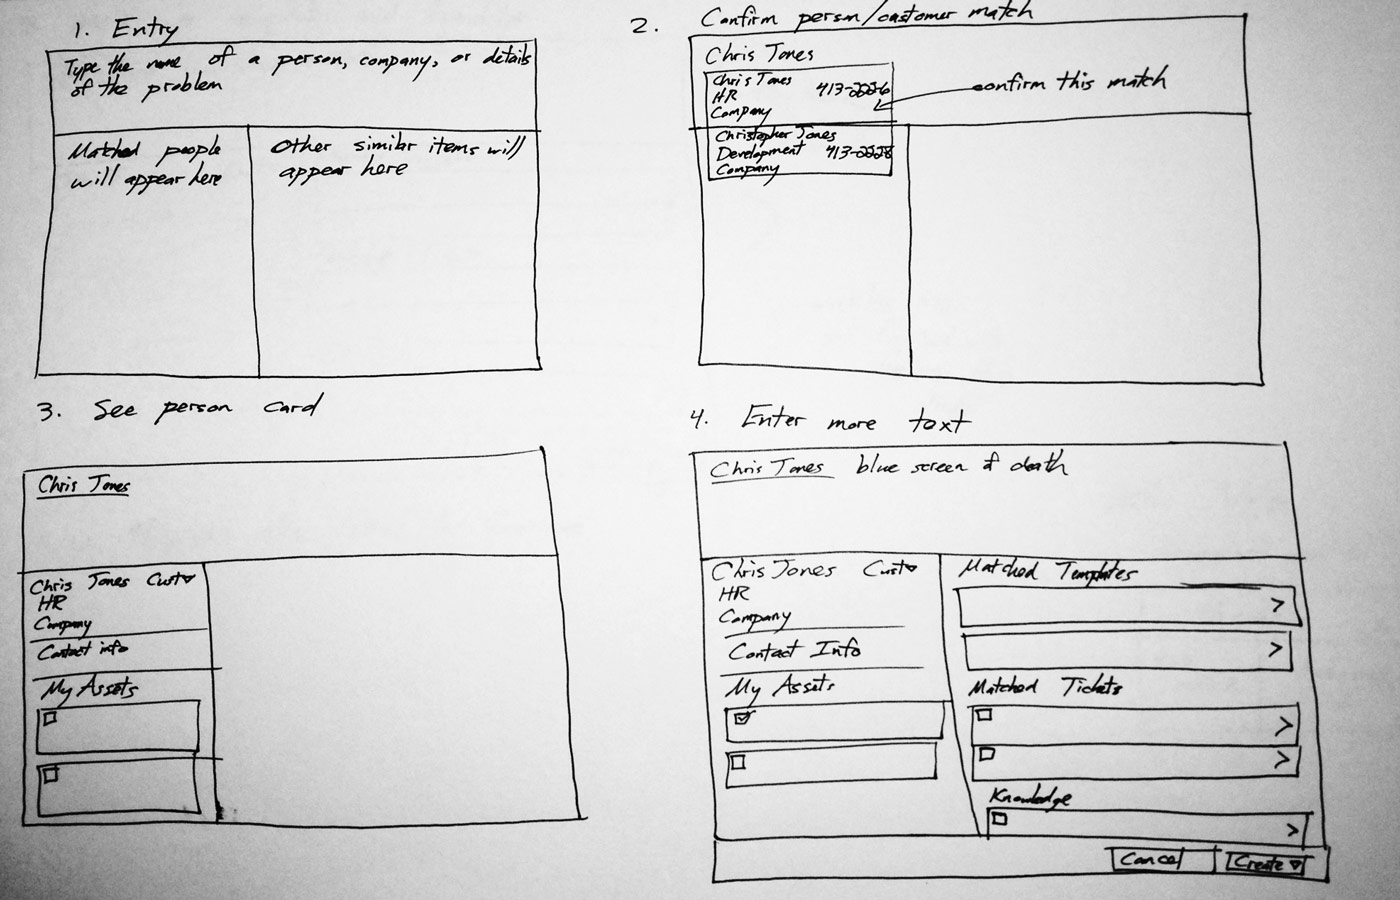 1. Entry
Type the name of a person, company, or details
of the problem
Matched people
will appear here
Other similar items will
appear here
2. Confirm person/customer match
Chris Jones
Chris Jones
HR 413-2226
Company
confirm this match
Christopher Jones
Development 413-2228
Company
3. See person card
Chris Jones
Chris Jones Cust
HR
Company
Contact info
My Assets
4. Enter more text
Chris Jones blue screen of death
Chris Jones Cust
HR
Company
Contact Info
My Assets
Matched Templates
>
>
Matched Tickets
>
>
Knowledge
>
Cancel
Create